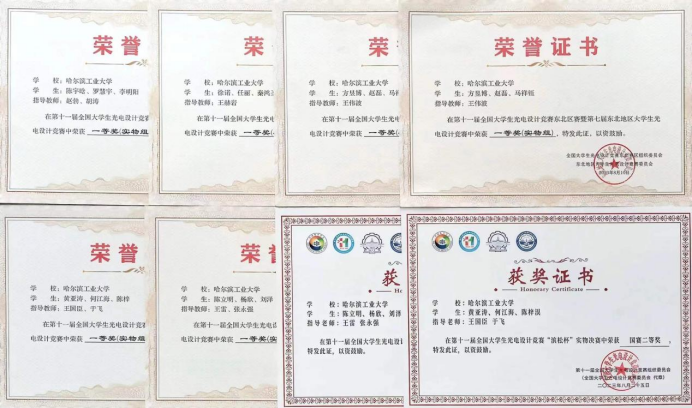 荣誉
学 校：哈尔滨工业大学
学 生：陈宇晗、罗慧宇、李明阳
指导教师：赵勃、胡涛
在第十一届全国大学生光电设计竞赛
电设计竞赛中荣获 一等奖(实物组)
荣誉
学 校：哈尔滨工业大学
学 生：徐诺、任丽、秦鸿
指导教师：王赫岩
在第十一届全国大学生光电设计竞
电设计竞赛中荣获 一等奖(实物
荣誉
学 校：哈尔滨工业大学
学 生：方昱博、赵磊、马祥
指导教师：王伟波
在第十一届全国大学生光电设计竞
电设计竞赛中荣获 一等奖(实物
荣誉证书
学 校：哈尔滨工业大学
学 生：方昱博、赵磊、马祥钰
指导教师：王伟波
在第十一届全国大学生光电设计竞赛东北区赛暨第七届东北地区大学生光
电设计竞赛中荣获 一等奖(实物组)，特发此证，以资鼓励。
荣誉
学 校：哈尔滨工业大学
学 生：黄亚涛、何江海、陈梓
指导教师：王国臣、于飞
在第十一届全国大学生光电设计竞赛
电设计竞赛中荣获 一等奖(实物组
荣誉
学 校：哈尔滨工业大学
学 生：陈立明、杨欣、刘泽
指导教师：王雷、张永强
在第十一届全国大学生光电设
电设计竞赛中荣获 一等奖(实
获
学 校：哈尔滨工业大学
学 生：陈立明、杨欣、刘泽
指导老师：王雷 张永强
在第十一届全国大学生光电设计
特发此证，以资鼓励。
获奖证书
Honorary Certificate
学 校：哈尔滨工业大学
学 生：黄亚涛、何江海、陈梓滨
指导老师：王国臣 于飞
在第十一届全国大学生光电设计竞赛“滨松杯”实物决赛中荣获 国赛二等奖，
特发此证，以资鼓励。
(全国大学生光电设计竞赛委员会 代章)
二〇二三年八月二十五日